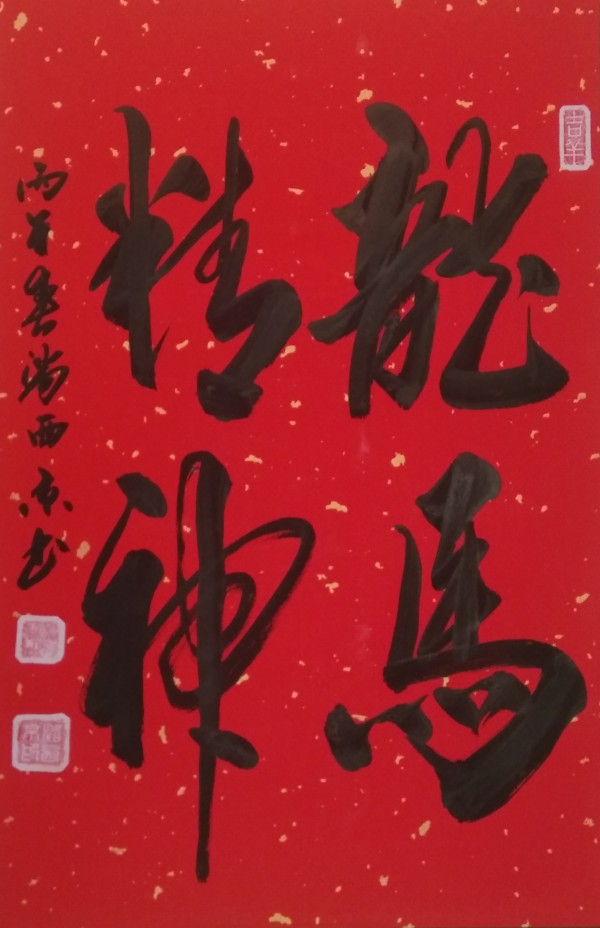 龍馬
精神
丙午春滿西京書